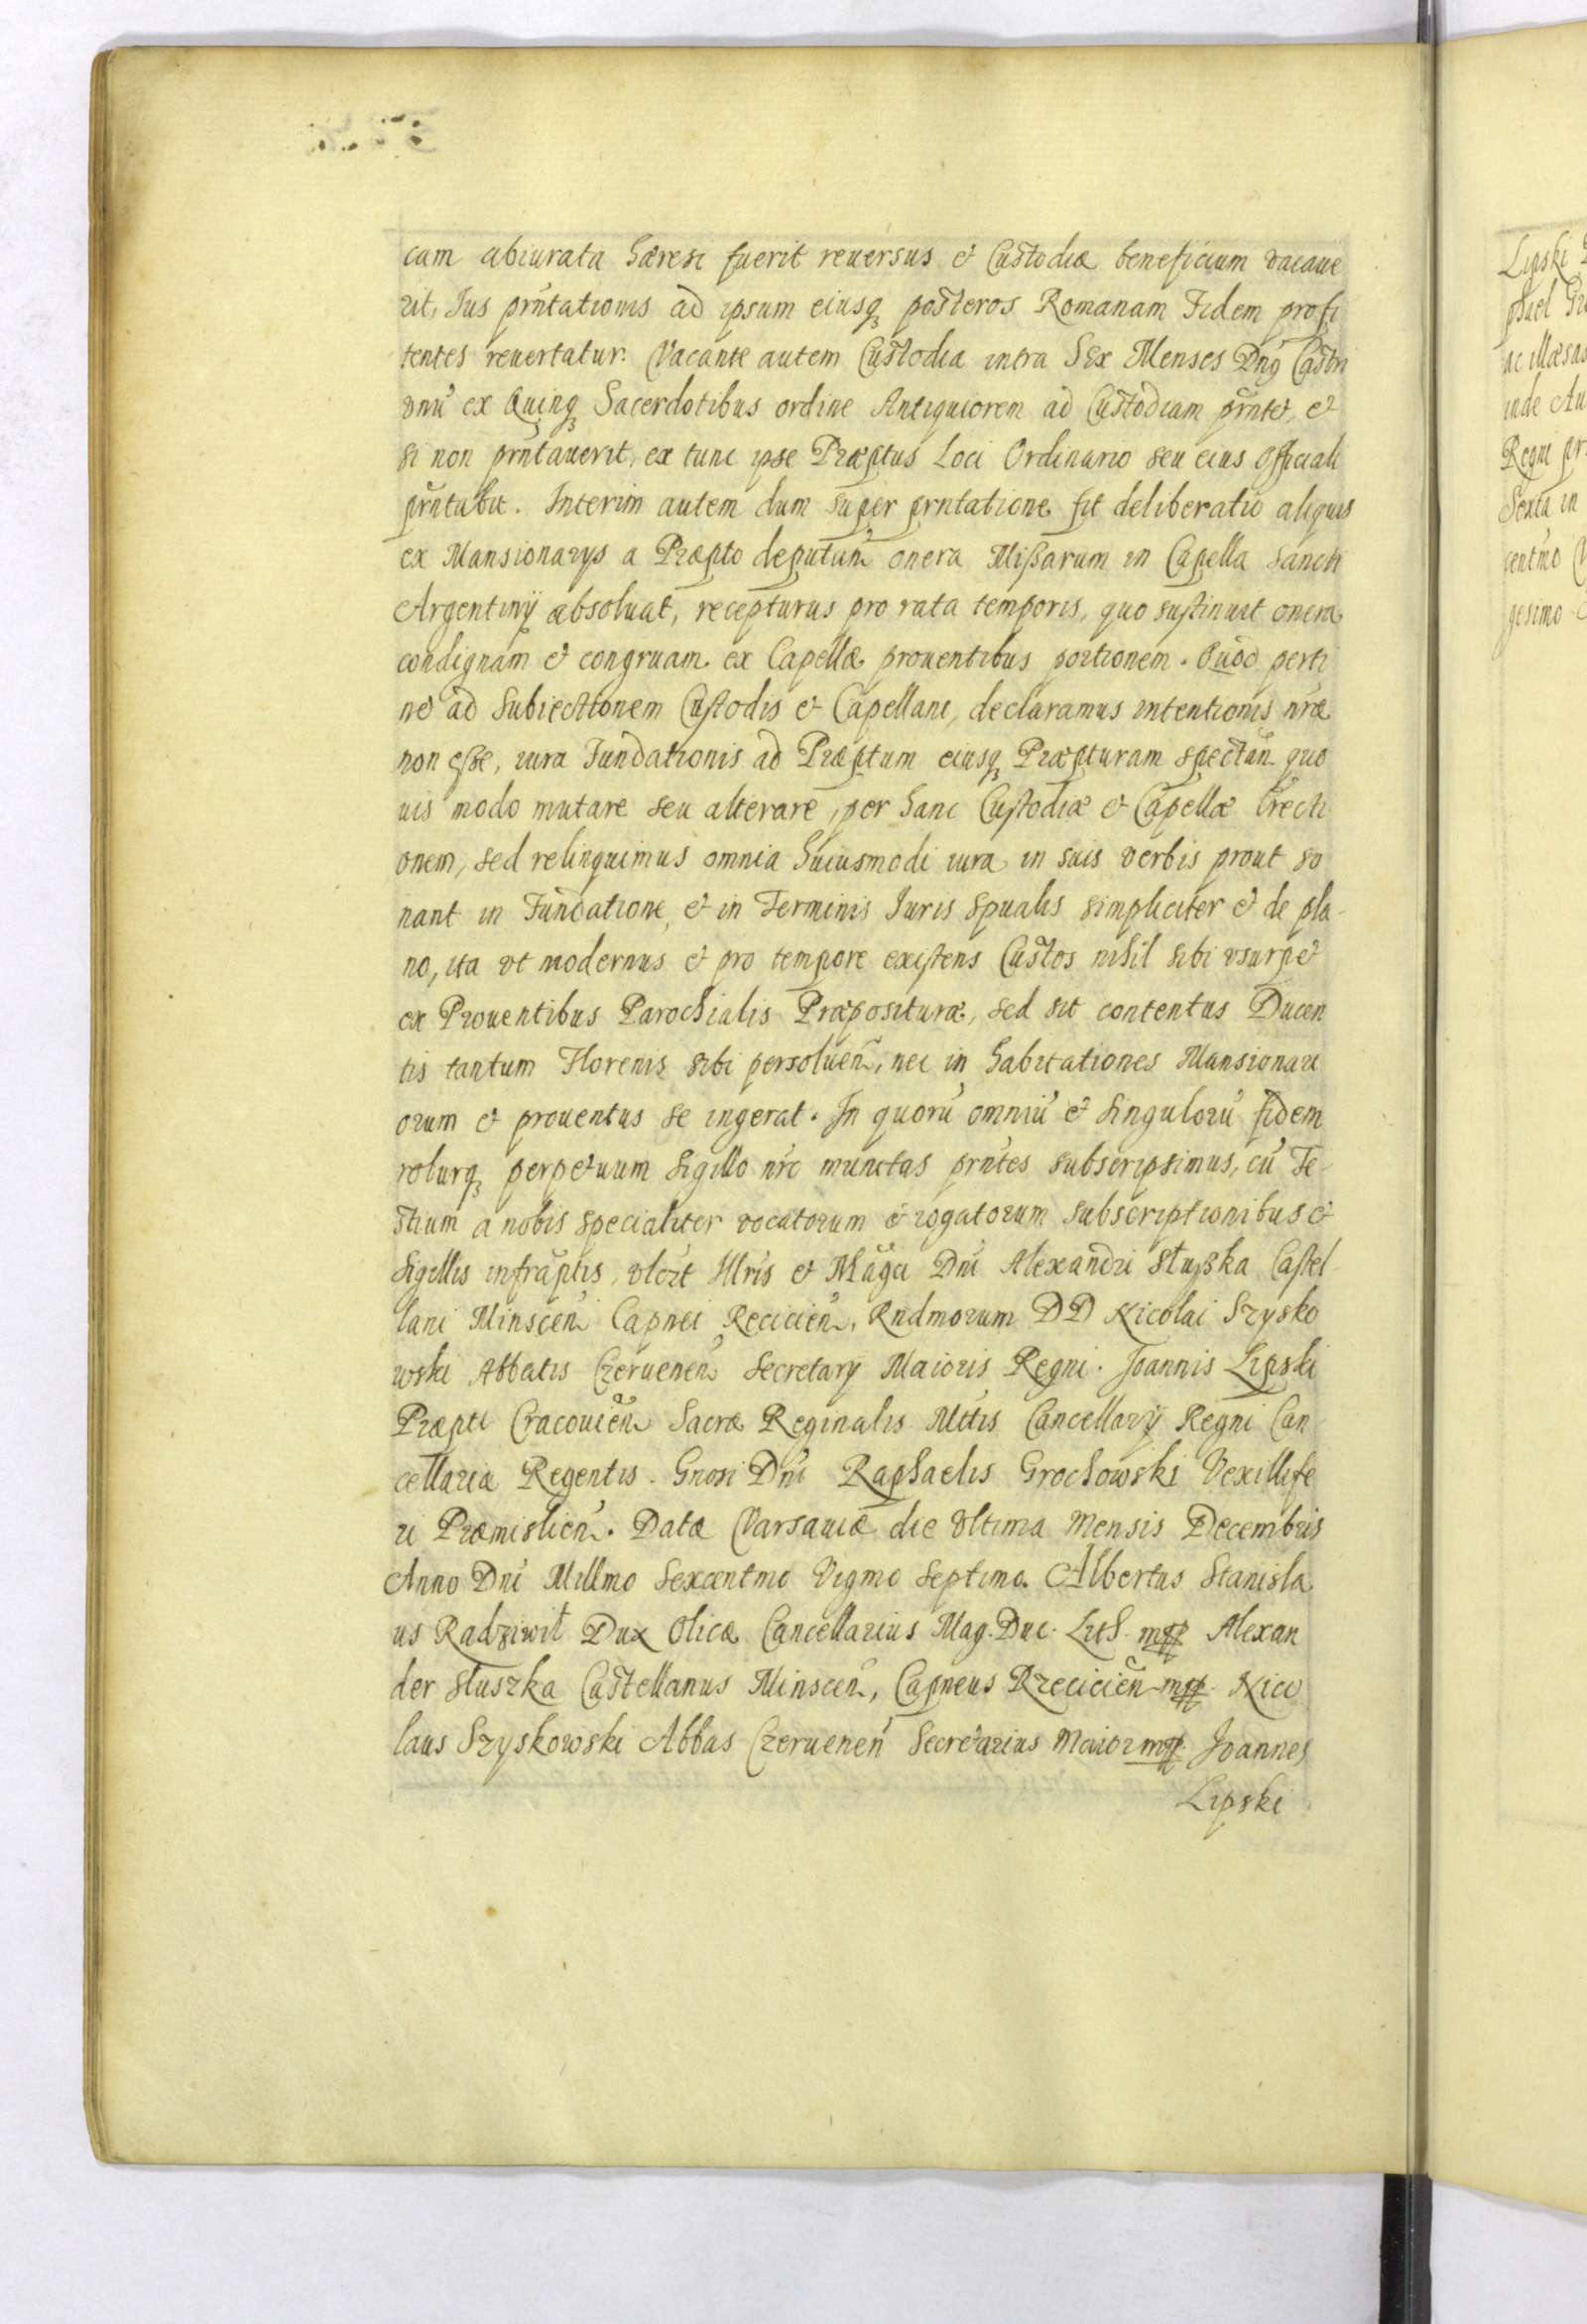 cam abiurata hæresi fuerit reuersus et Custodiæ beneficium vacaue
rit, Ius prñtationis ad ipsum eiusq; posteros Romanam Fidem profi
tentes reuertatur. Vacante autem Custodia intra Sex Menses Dnꝰ Castri
vnũ ex Quinq; Sacerdotibus ordine Antiquiorem ad Custodiam prñtet, et
si non prñtauerit, ex tunc ipse Præptus Loci Ordinario seu eius Officiali
prñtabit. Interim autem dum super prntatione fit deliberatio aliquis
ex Mansionarys a Præpto deputañ onera Missarum in Capella Sancti
Argentinij absoluat, recepturus pro rata temporis, quo sustinuit onera
condignam et congruam ex Capellæ prouentibus portionem. Quod perti
net ad Subiectionem Custodis et Capellani, declaramus intentionis nræ
non esse, iura Fundationis ad Præptum eiusq; Præpturam spectañ quo
uis modo mutare seu alterare, per hanc Custodiæ et Capellæ Erecti
onem, sed relinquimus omnia huiusmodi iura in suis verbis prout so
nant in Fundatione, et in Terminis Iuris Spualis simpliciter et de pla-
no, ita vt modernus et pro tempore existens Custos nihil sibi vsurpet
ex Prouentibus Parochialis Præposituræ, sed sit contentus Ducen
tis tantum Florenis sibi persoluen̄, nec in habitationes Mansionari
orum et prouentus se ingerat. In quorũ omniũ et singulorũ fidem
roburq; perpetuum Sigillo nr̃o munitas prñtes subscripsimus, cũ Te-
stium a nobis specialiter vocatorum et rogatorum subscriptionibus et
Sigillis infrãptis, vtĩ Illris et Mãgci Dni Alexandri Słuszka Castel-
lani Minscen̄ Capnei Recicien̄, Rndmorum DD Nicolai Szysko
wski Abbatis Czeruenen̄ Secretarij Maioris Regni. Joannis Lipski
Præpti Cracouien̄ Sacræ Reginalis Mttis Cancellarij Regni Can
cellaria Regentis. Gnosi Dni Raphaelis Grochowski Vexillife
ri Præmislien̄. Datæ Varsauiæ die vltima Mensis Decembris
Anno Dni Millmo Sexcentmo Vigmo Septimo. Albertus Stanisla
us Radziwił Dux Olicæ Cancellarius Mag. Duc. Lith. mpp Alexan
der Słuszka Castellanus Minscen̄, Capneus Rzecicien̄ mpp. Nico
laus Szyskowski Abbas Czeruenen̄ Secretarius Maior mpp Joannes
Lipski